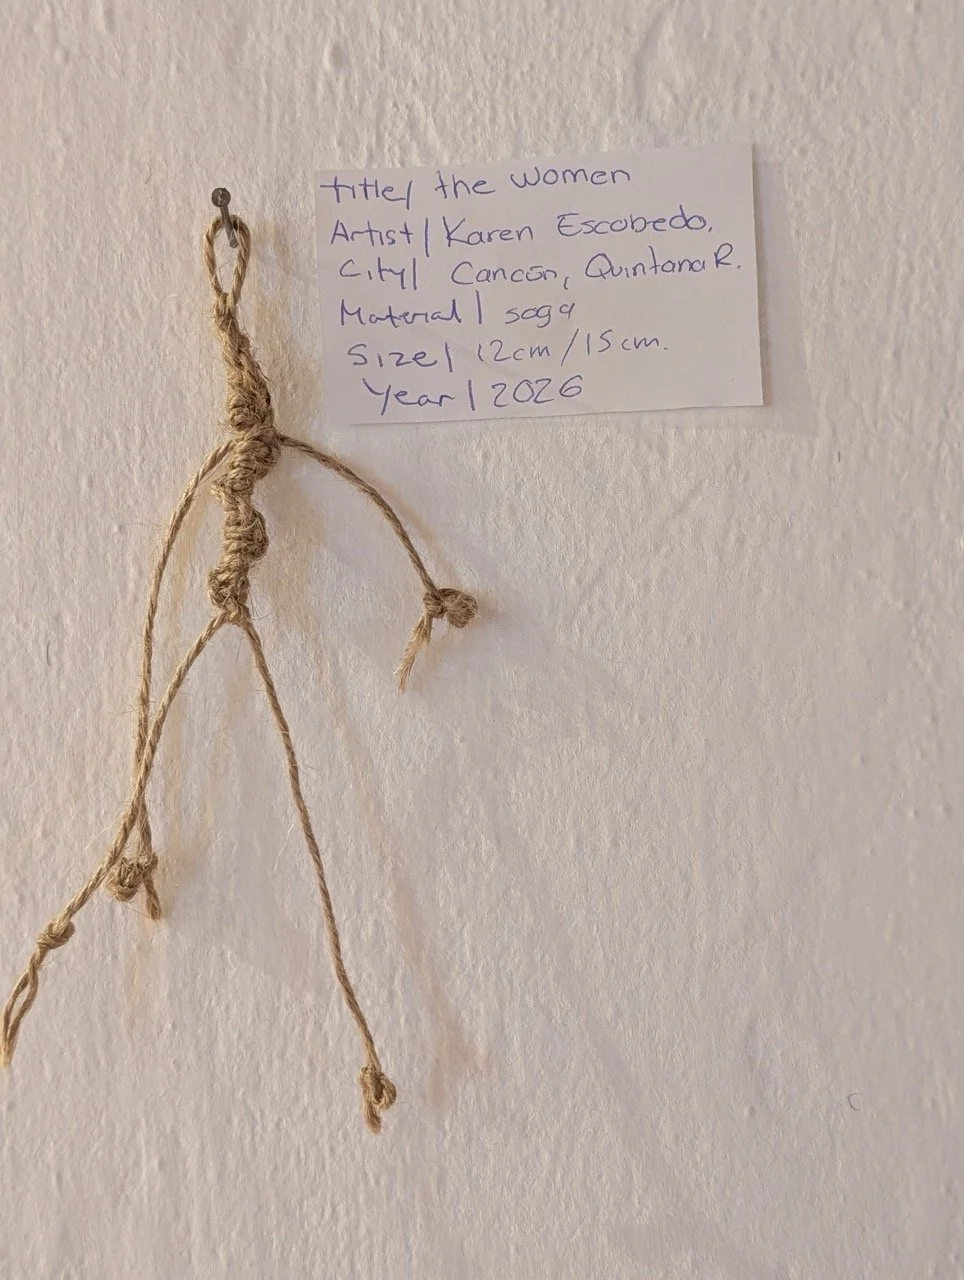 title/ the women
Artist/ Karen Escobedo.
City/ Cancún, Quintana R.
Material/ soga
Size/ 12cm/15cm.
Year/ 2026